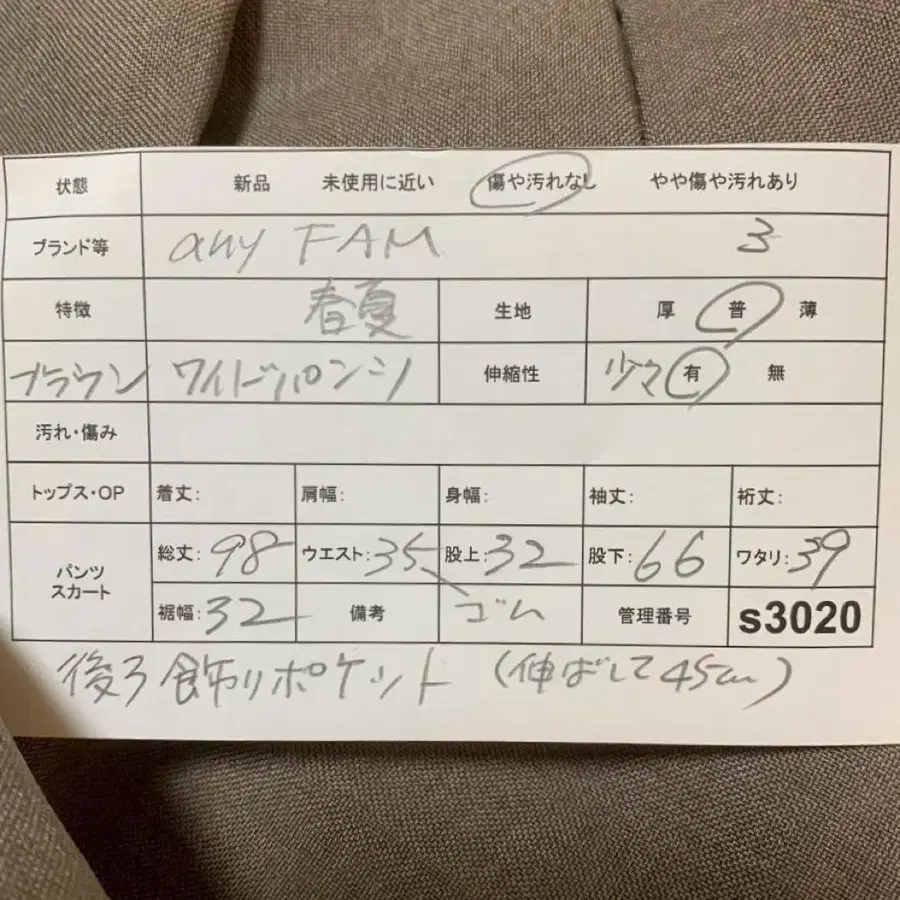 状態 新品 未使用に近い 傷や汚れなし やや傷や汚れあり
ブランド等 any FAM 3
特徴 春夏 生地 厚 普 薄
ブラウン ワイドパンツ 伸縮性 少々 有 無
汚れ・傷み
トップス・OP 着丈: 肩幅: 身幅: 袖丈: 裄丈:
パンツ スカート 総丈: 98 ウエスト: 35 股上: 32 股下: 66 ワタリ: 39
裾幅: 32 備考 ゴム 管理番号 s3020
後ろ飾りポケット (伸ばして45cm)